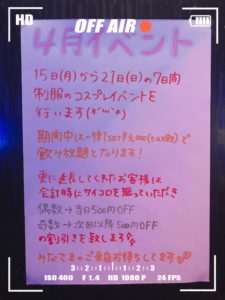 HD
OFF AIR
4月イベント
15日(月)から21日(日)の7日間
制服のコスプレイベントを
行います
期間中(エー
1SET¥3,000
で
飲み放題となります!
更に延長してくれたお客様は
会計時にサイコロを振っていただき
偶数→当日500円OFF
奇数→次回以降500円OFF
の割引きを致します
みなさまのご来店お待ちしてます
3::2::1::1::2::3
ISO 400 F 1.4 HD 1080 P 24 FPS